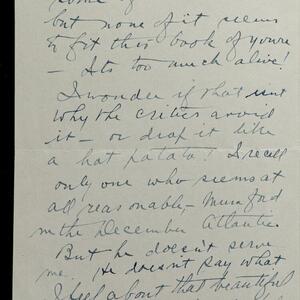 some of
but none of it seems
to fit this book of yours
— Its too much alive!
I wonder if that isnt
why the critics avoid
it — or drop it like
a hot potato! I recall
only one who seems at
all reasonable — Mumford
in the December Atlantic.
But he doesn't serve
me. He doesn't say what
I feel about that beautiful